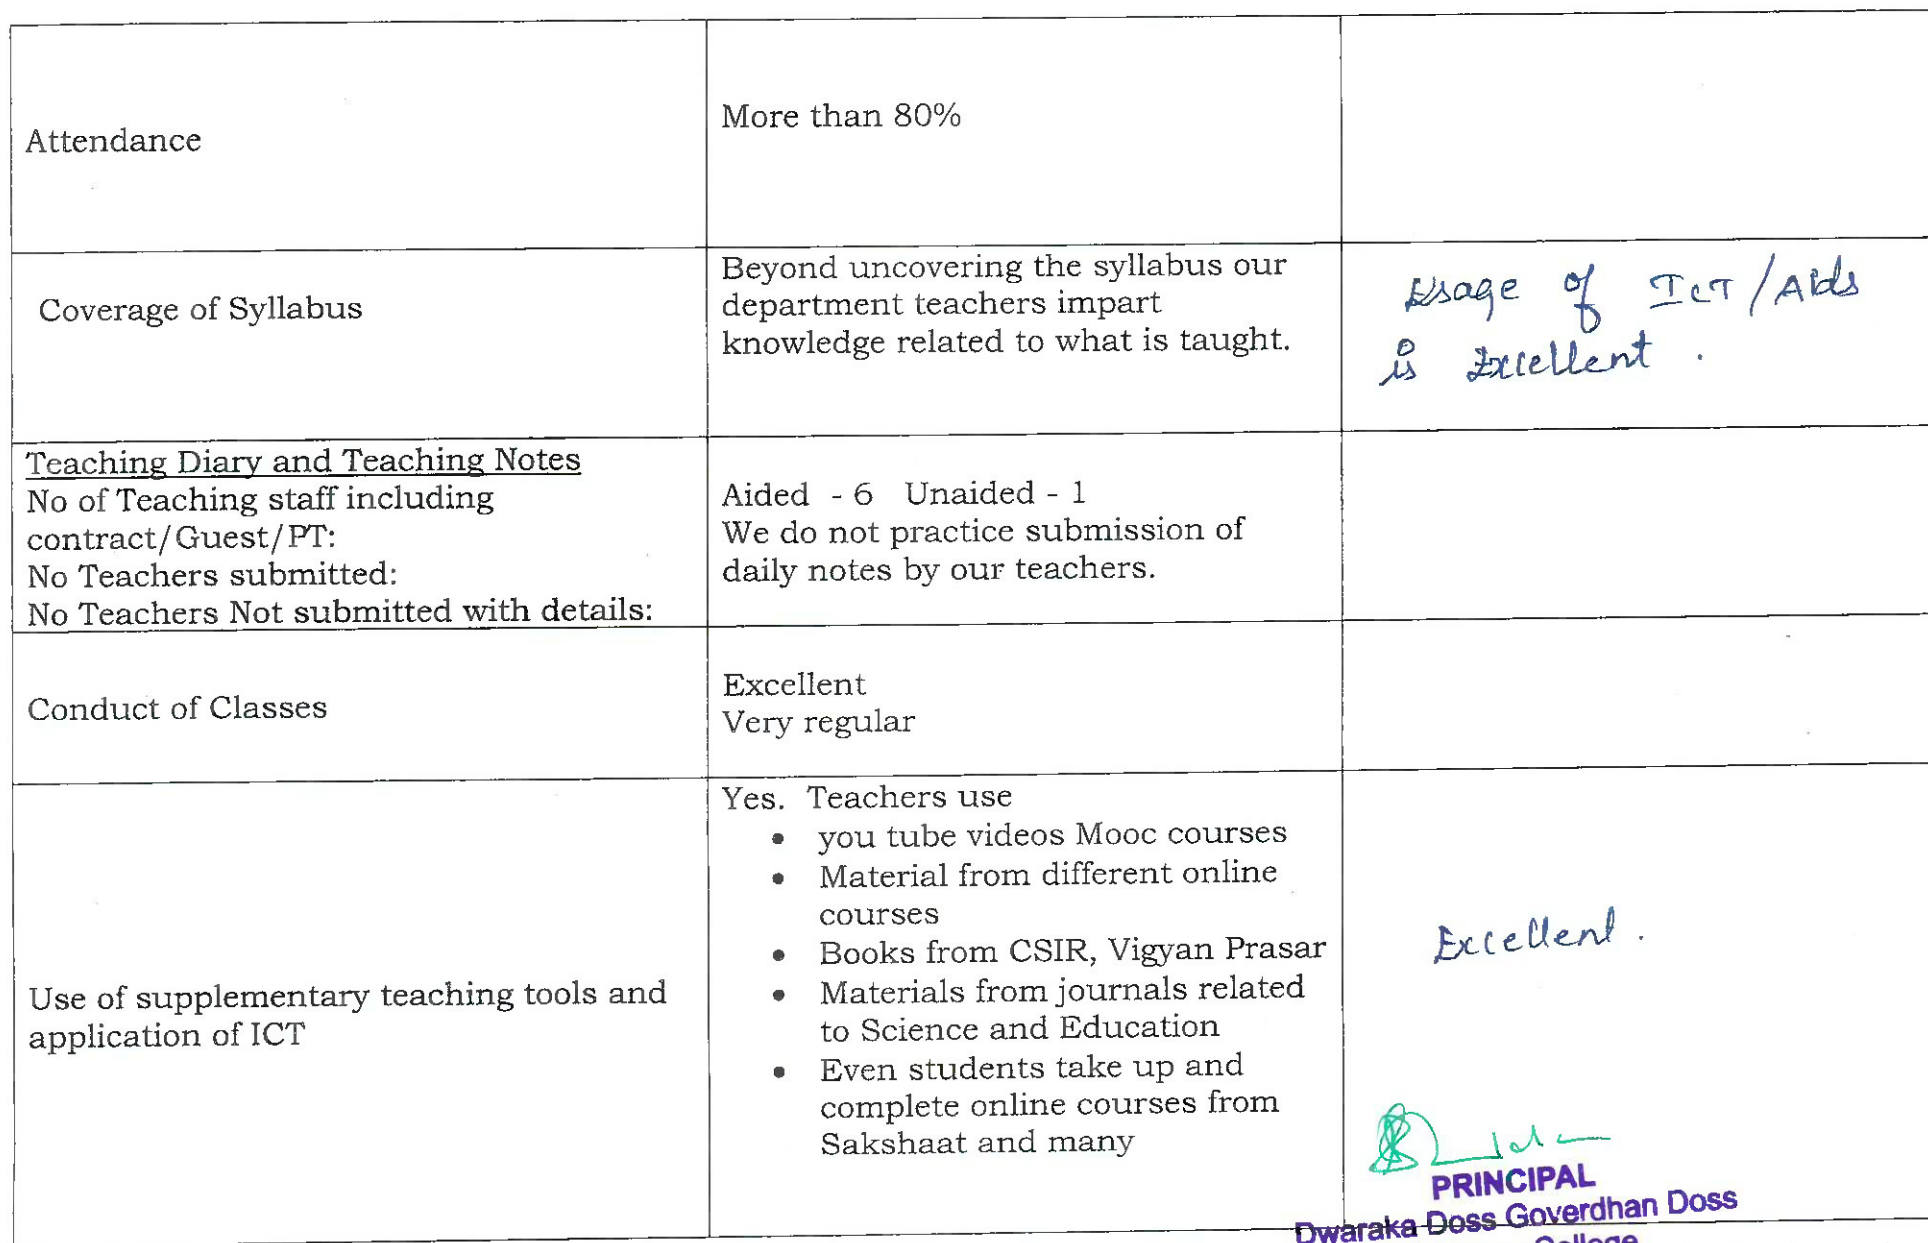 Attendance
More than 80%
Coverage of Syllabus
Beyond uncovering the syllabus our
department teachers impart
knowledge related to what is taught.
Usage of ICT/Aids
is Excellent.
Teaching Diary and Teaching Notes
No of Teaching staff including
contract/Guest/PT:
No Teachers submitted:
No Teachers Not submitted with details:
Aided - 6 Unaided - 1
We do not practice submission of
daily notes by our teachers.
Conduct of Classes
Excellent
Very regular
Use of supplementary teaching tools and
application of ICT
Yes. Teachers use
• you tube videos Mooc courses
• Material from different online
courses
• Books from CSIR, Vigyan Prasar
• Materials from journals related
to Science and Education
• Even students take up and
complete online courses from
Sakshaat and many
Excellent.
PRINCIPAL
Dwaraka Doss Goverdhan Doss
College